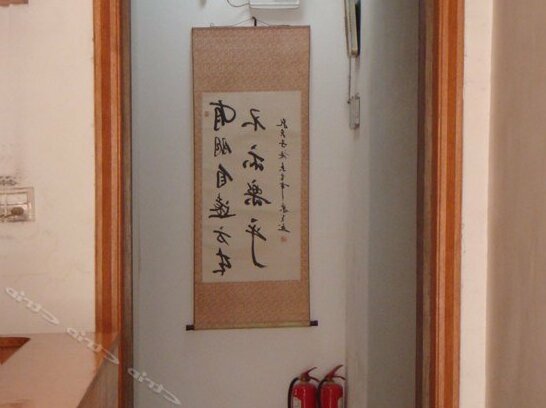 有朋自遠方来
不亦樂乎
Ctrip
Ctrip
Ctrip